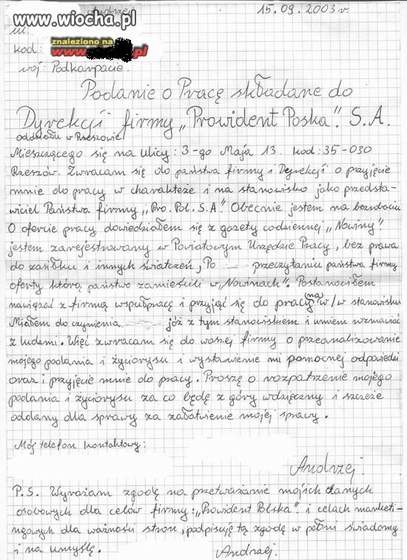 www.wiocha.pl
15.09.2003 r.
znaleziono na
.pl
ul.
kod
woj Podkarpacie
Podanie o Pracę składane do
Dyrekcji firmy „Prowident Poska". S.A.
oddziału w Rzeszowie
Mieszącego się na Ulicy: 3-go Maja 13 kod: 35-030
Rzeszów. Zwracam się do państwa firmy i Dyrekcji o przyjęcie
mnie do pracy w charakteże i na stanowisko jako przedsta-
wiciel Państwa firmy „Pro. Pol. S.A" Obecnie jestem na bezrobociu
O ofercie pracy dowiedziałem się z gazety codziennej „Nowiny"
jestem zarejestrowany w Powiatowym Urzędzie Pracy, bez prawa
do zasiłku i innych świateżeń, Po przeczytaniu państwa firmy
oferty którą państwo zamieścili w „Nowinach". Postanociłem
nawiązać z firmą współpracę i przyjąć się do pracy na w/w stanowisku
Miałem do czynienia joż z tym stanowistkiem i umiem
z ludzmi. Więc zwracam się do waszej firmy o przeanalizowanie
mojego podania i życiorysu i wystawienie mi pomocnej odpowiedi
oraz i przyjęcie mnie do pracy. Proszę o rozpatrzenie mojego
podania i życiorysu za co będę z góry wdzięczny i szczeże
oddany dla sprawy za załatwienie mojej sprawy.
Mój telefon kontaktowy:
Andrzej
P.S. Wyrażam zgodę na przetważanie mojich danych
osobowych dla celów firmy: „Prowident Polska" i celach marketin-
ngowych dla ważności stron, podpisuję tą zgodę w pełni świadomy
i na umyślę.
Andrzej